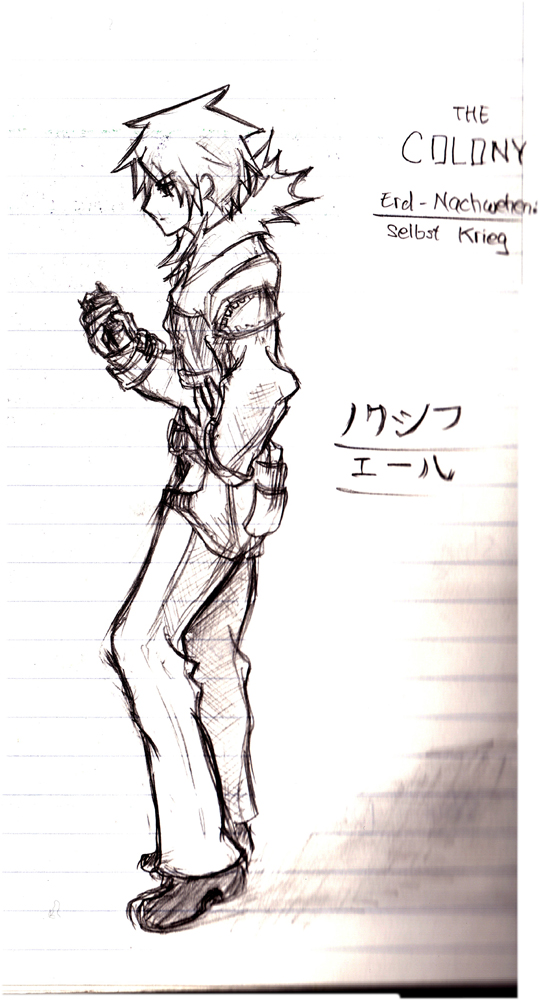 THE
COLONY
Erd-Nachwehen:
Selbst Krieg
ノクシフ
エール